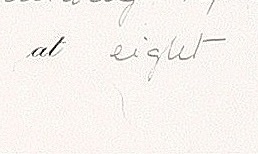 at eight